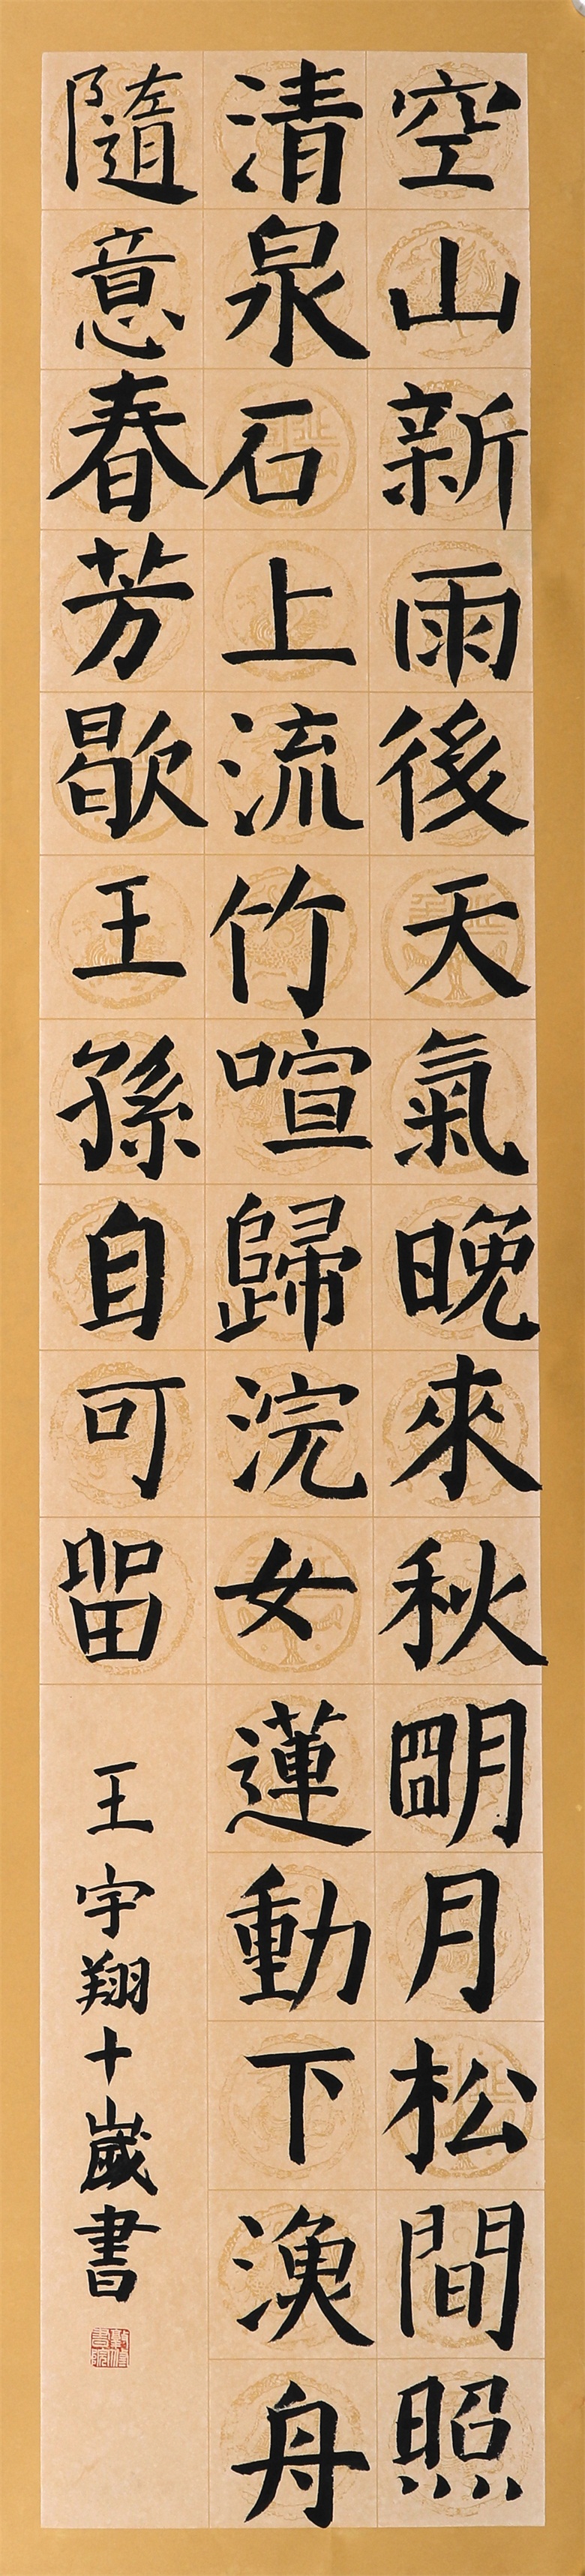 空山新雨後天氣晚來秋朙月松間照
清泉石上流竹喧歸浣女蓮動下漁舟
隨意春芳歇王孫自可留
王宇翔十歲書